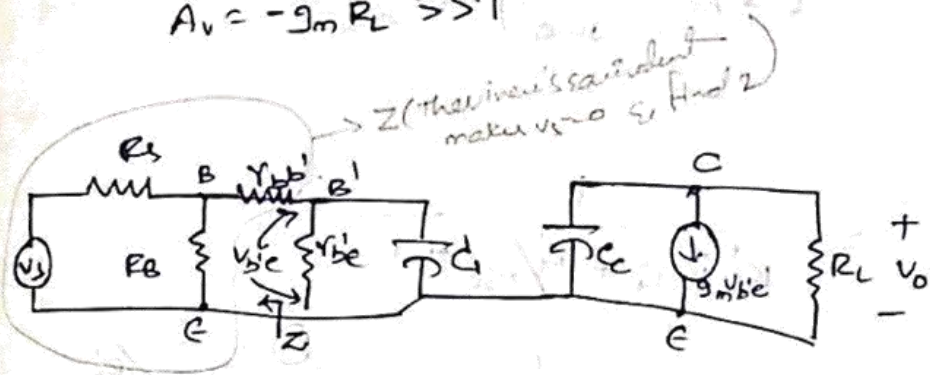 Av = -gm RL >> 1
Z (Thevinen's equivalent
makes vs=0 & find Z)
Rs
B
rbb'
B'
C
vs
RB
vb'e
rb'e
C1
Cc
gmvb'e
RL
+
vo
-
E
Z
E